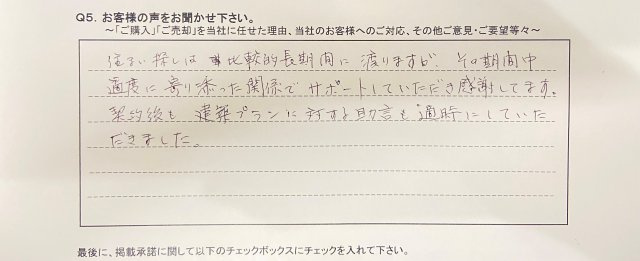 Q5. お客様の声をお聞かせ下さい。
～「ご購入」「ご売却」を当社に任せた理由、当社のお客様へのご対応、その他ご意見・ご要望等々～
住まい探しは比較的長期間に渡りますが、その期間中
適度に寄り添った関係でサポートしていただき感謝してます。
契約後も建築プランに対する助言も適時にしていた
だきました。
最後に、掲載承諾に関して以下のチェックボックスにチェックを入れて下さい。